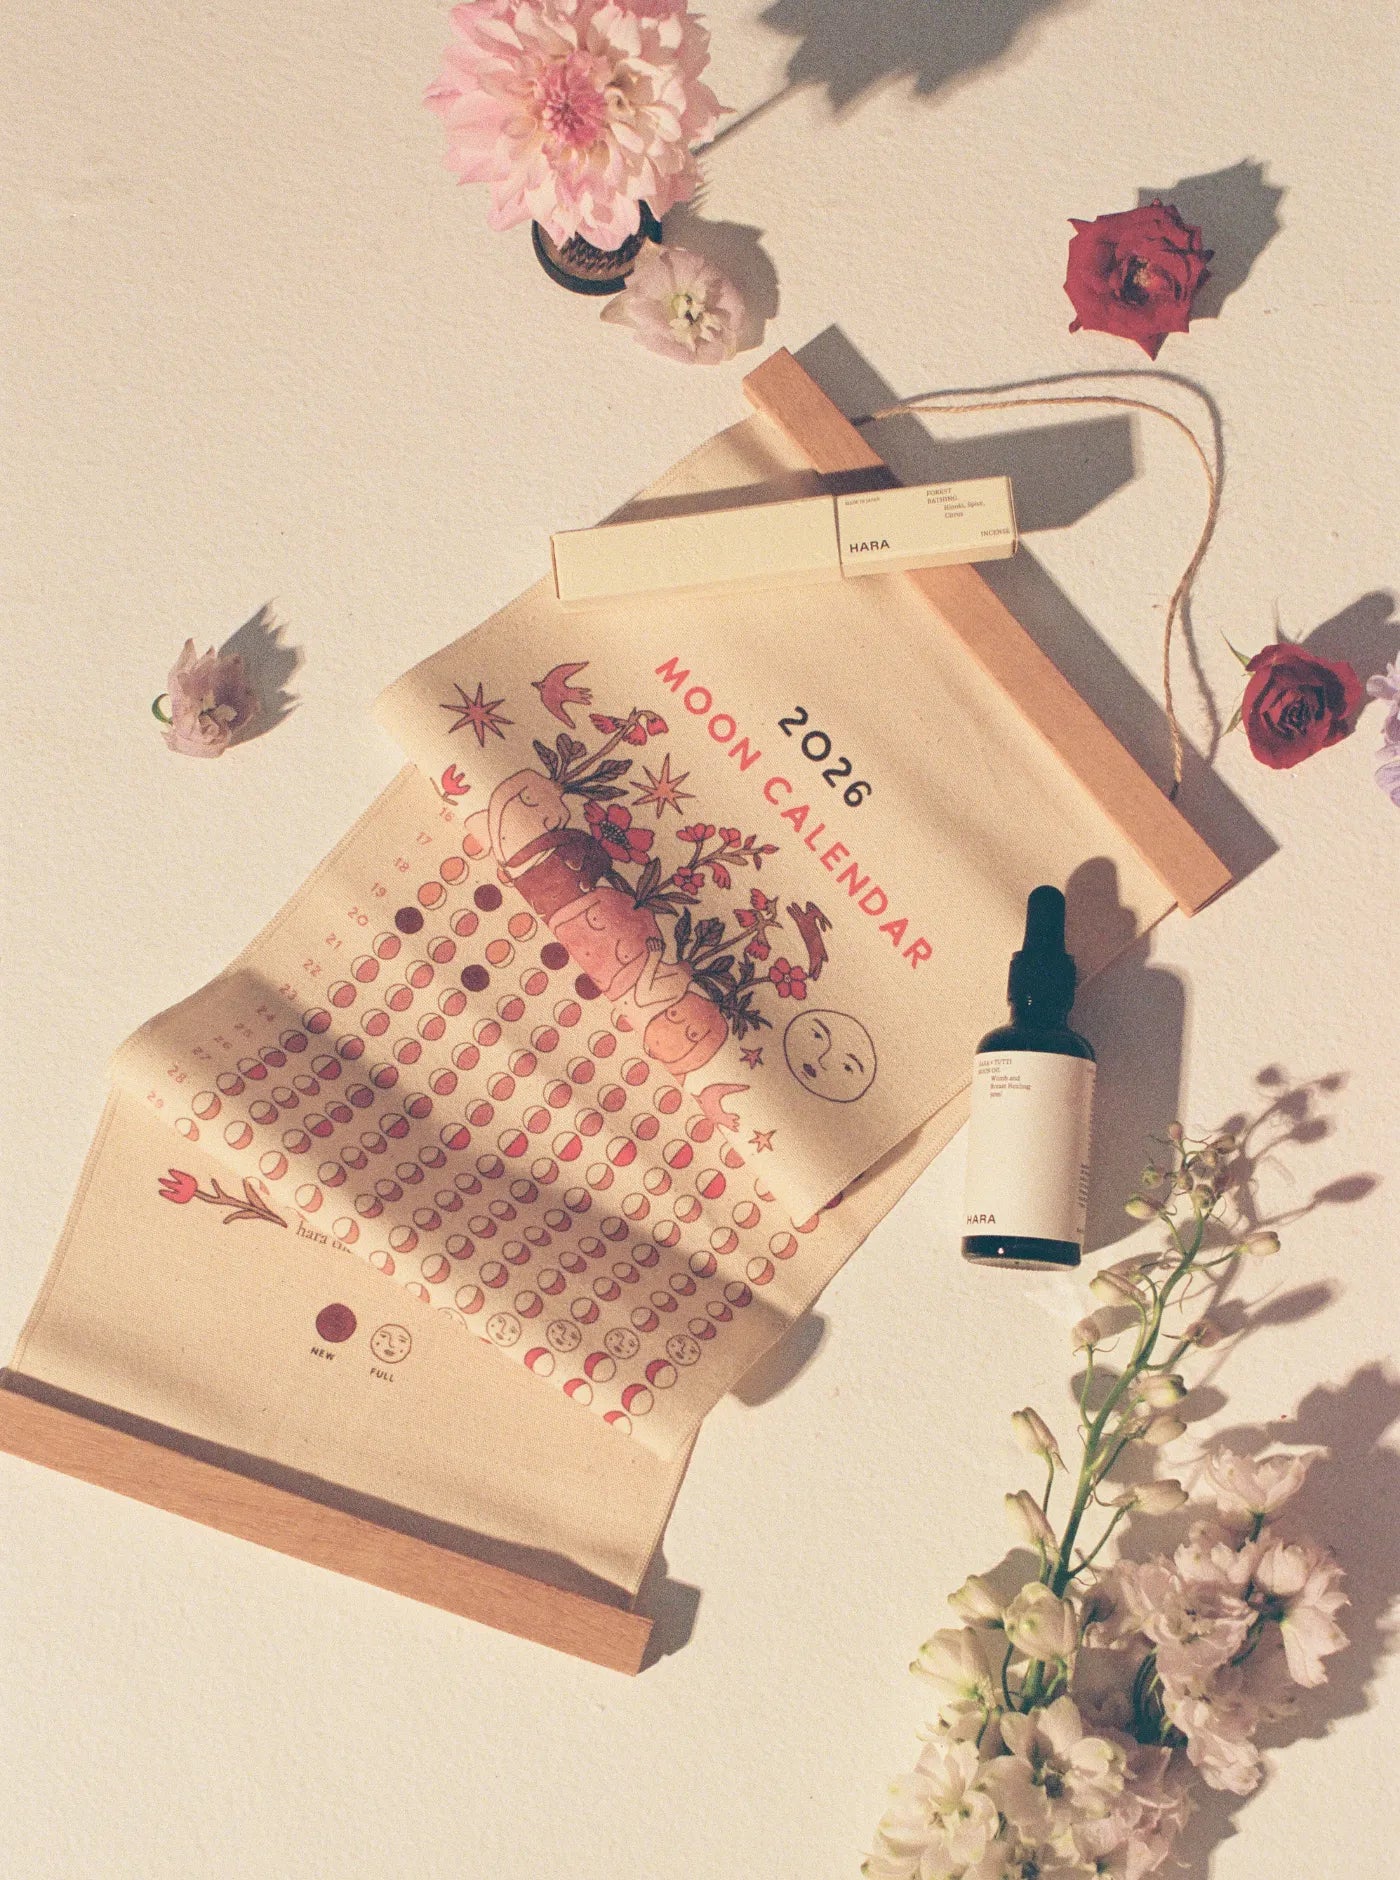 MADE IN JAPAN
FOREST
BATHING
Hinoki, Spice,
Citrus
INCENSE
HARA
2026
MOON CALENDAR
16
17
18
19
20
21
22
23
24
25
26
27
28
29
hara
NEW
FULL
HARA × TUTTI
MOON OIL
Womb and
Breast Healing
HARA